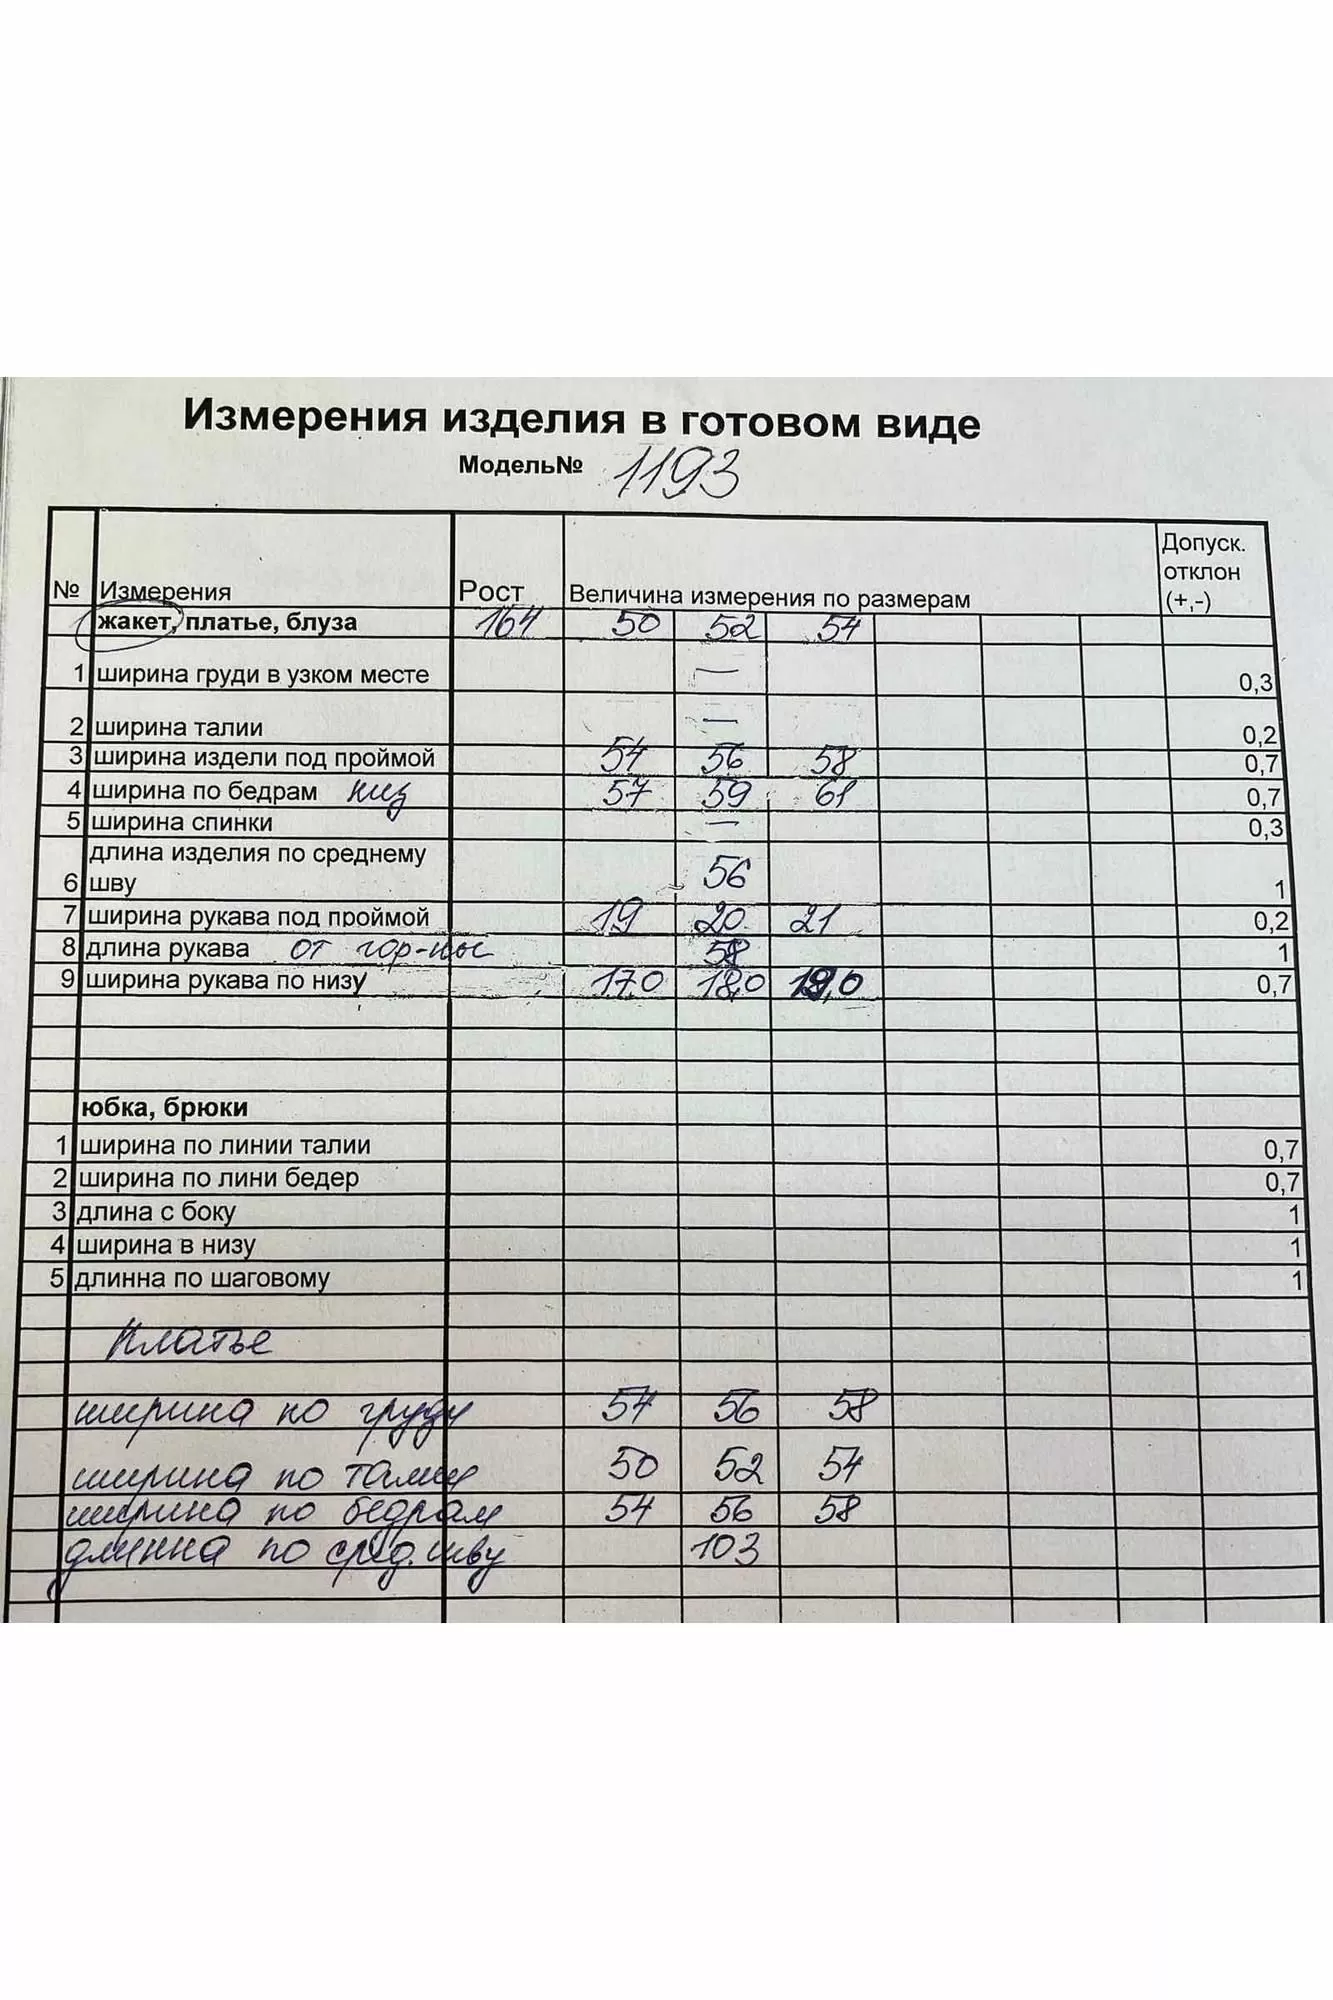 Измерения изделия в готовом виде
Модель№ 1193
№ Измерения Рост Величина измерения по размерам Допуск. отклон (+,-)
жакет, платье, блуза 164 50 52 54
1 ширина груди в узком месте — 0,3
2 ширина талии — 0,2
3 ширина издели под проймой 54 56 58 0,7
4 ширина по бедрам низ 57 59 61 0,7
5 ширина спинки — 0,3
длина изделия по среднему
6 шву 56 1
7 ширина рукава под проймой 19 20 21 0,2
8 длина рукава от гор-ны 58 1
9 ширина рукава по низу 17,0 18,0 19,0 0,7
юбка, брюки
1 ширина по линии талии 0,7
2 ширина по лини бедер 0,7
3 длина с боку 1
4 ширина в низу 1
5 длинна по шаговому 1
Платье
ширина по груду 54 56 58
ширина по талии 50 52 54
ширина по бедрам 54 56 58
длинна по сред. шву 103